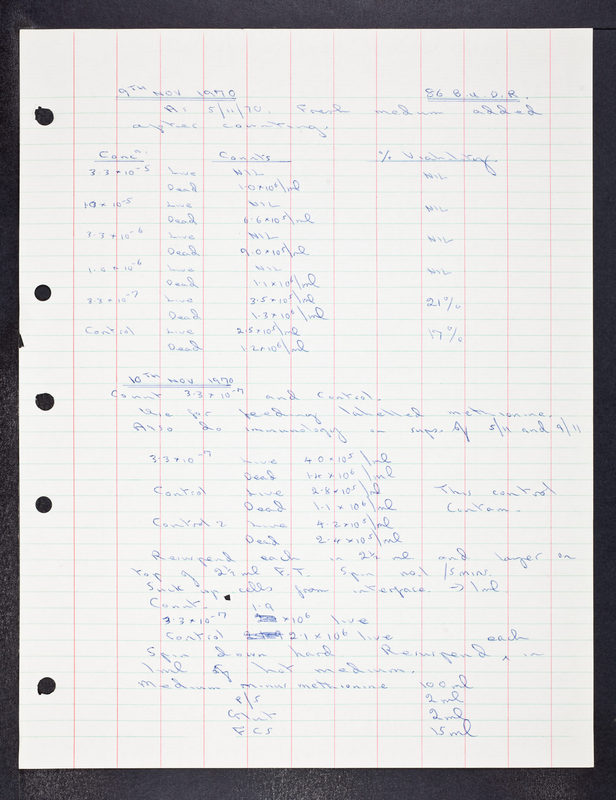 9TH NOV 1970 86 B.U.D.R.
As 5/11/70. Fresh medium added
after counting.
Concn. Counts % Viability
3.3 x 10-5 Live NIL NIL
Dead 1.0x10⁶/ml
10 x 10-5 Live NIL NIL
Dead 6.6x10⁵/ml
3.3 x 10-6 Live NIL NIL
Dead 9.0x10⁵/ml
1.0 x 10-6 Live NIL NIL
Dead 1.1x10⁶/ml
3.3 x 10-7 Live 3.5x10⁵/ml 21%
Dead 1.3x10⁶/ml
Control Live 2.5x10⁵/ml 17%
Dead 1.2x10⁶/ml
10TH NOV 1970
Count 3.3 x 10-7 and Control.
Use for feeding labelled methionine.
Also do immunology on sups. of 5/11 and 9/11
3.3 x 10-7 Live 4.0 x 10⁵/ml
Dead x 10⁶/ml
Control Live 2.8 x 10⁵/ml This control
Dead 1.1 x 10⁶/ml Contam.
Control 2 Live 4.2 x 10⁵/ml
Dead 2.4 x 10⁵/ml
Resuspend each in 2½ ml and layer on
top of 2½ ml F.T. Spin no.1 /5 mins.
Suck up cells from interface. → 1ml
Count. 1.9
3.3 x 10-7 x 10⁶ live
Control 2.1 x 10⁶ live each
Spin down hard Resuspend ‸ in
1ml of hot medium.
Medium minus methionine 100 ml
P/S 2 ml
Glut 2 ml
FCS 15 ml